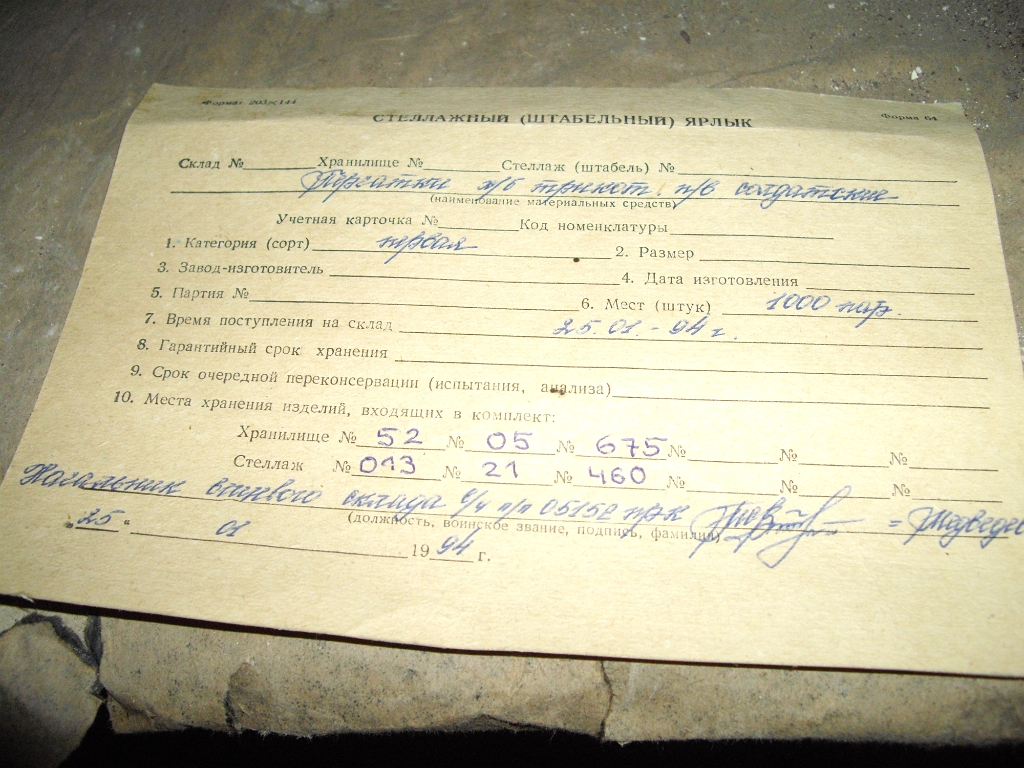 Формат 203×144
Форма 64
СТЕЛЛАЖНЫЙ (ШТАБЕЛЬНЫЙ) ЯРЛЫК
Склад № Хранилище № Стеллаж (штабель) №
Перчатки х/б трикот. п/в солдатские
(наименование материальных средств)
Учетная карточка № Код номенклатуры
1. Категория (сорт) первая 2. Размер
3. Завод-изготовитель 4. Дата изготовления
5. Партия № 6. Мест (штук) 1000 пар.
7. Время поступления на склад 25.01.-94 г.
8. Гарантийный срок хранения
9. Срок очередной переконсервации (испытания, анализа)
10. Места хранения изделий, входящих в комплект:
Хранилище № 52 № 05 № 675 № № №
Стеллаж № 013 № 21 № 460 № № №
Начальник склада в/ч п/п 05152 пр-к
(должность, воинское звание, подпись, фамилия)
„25“ 01 1994 г.